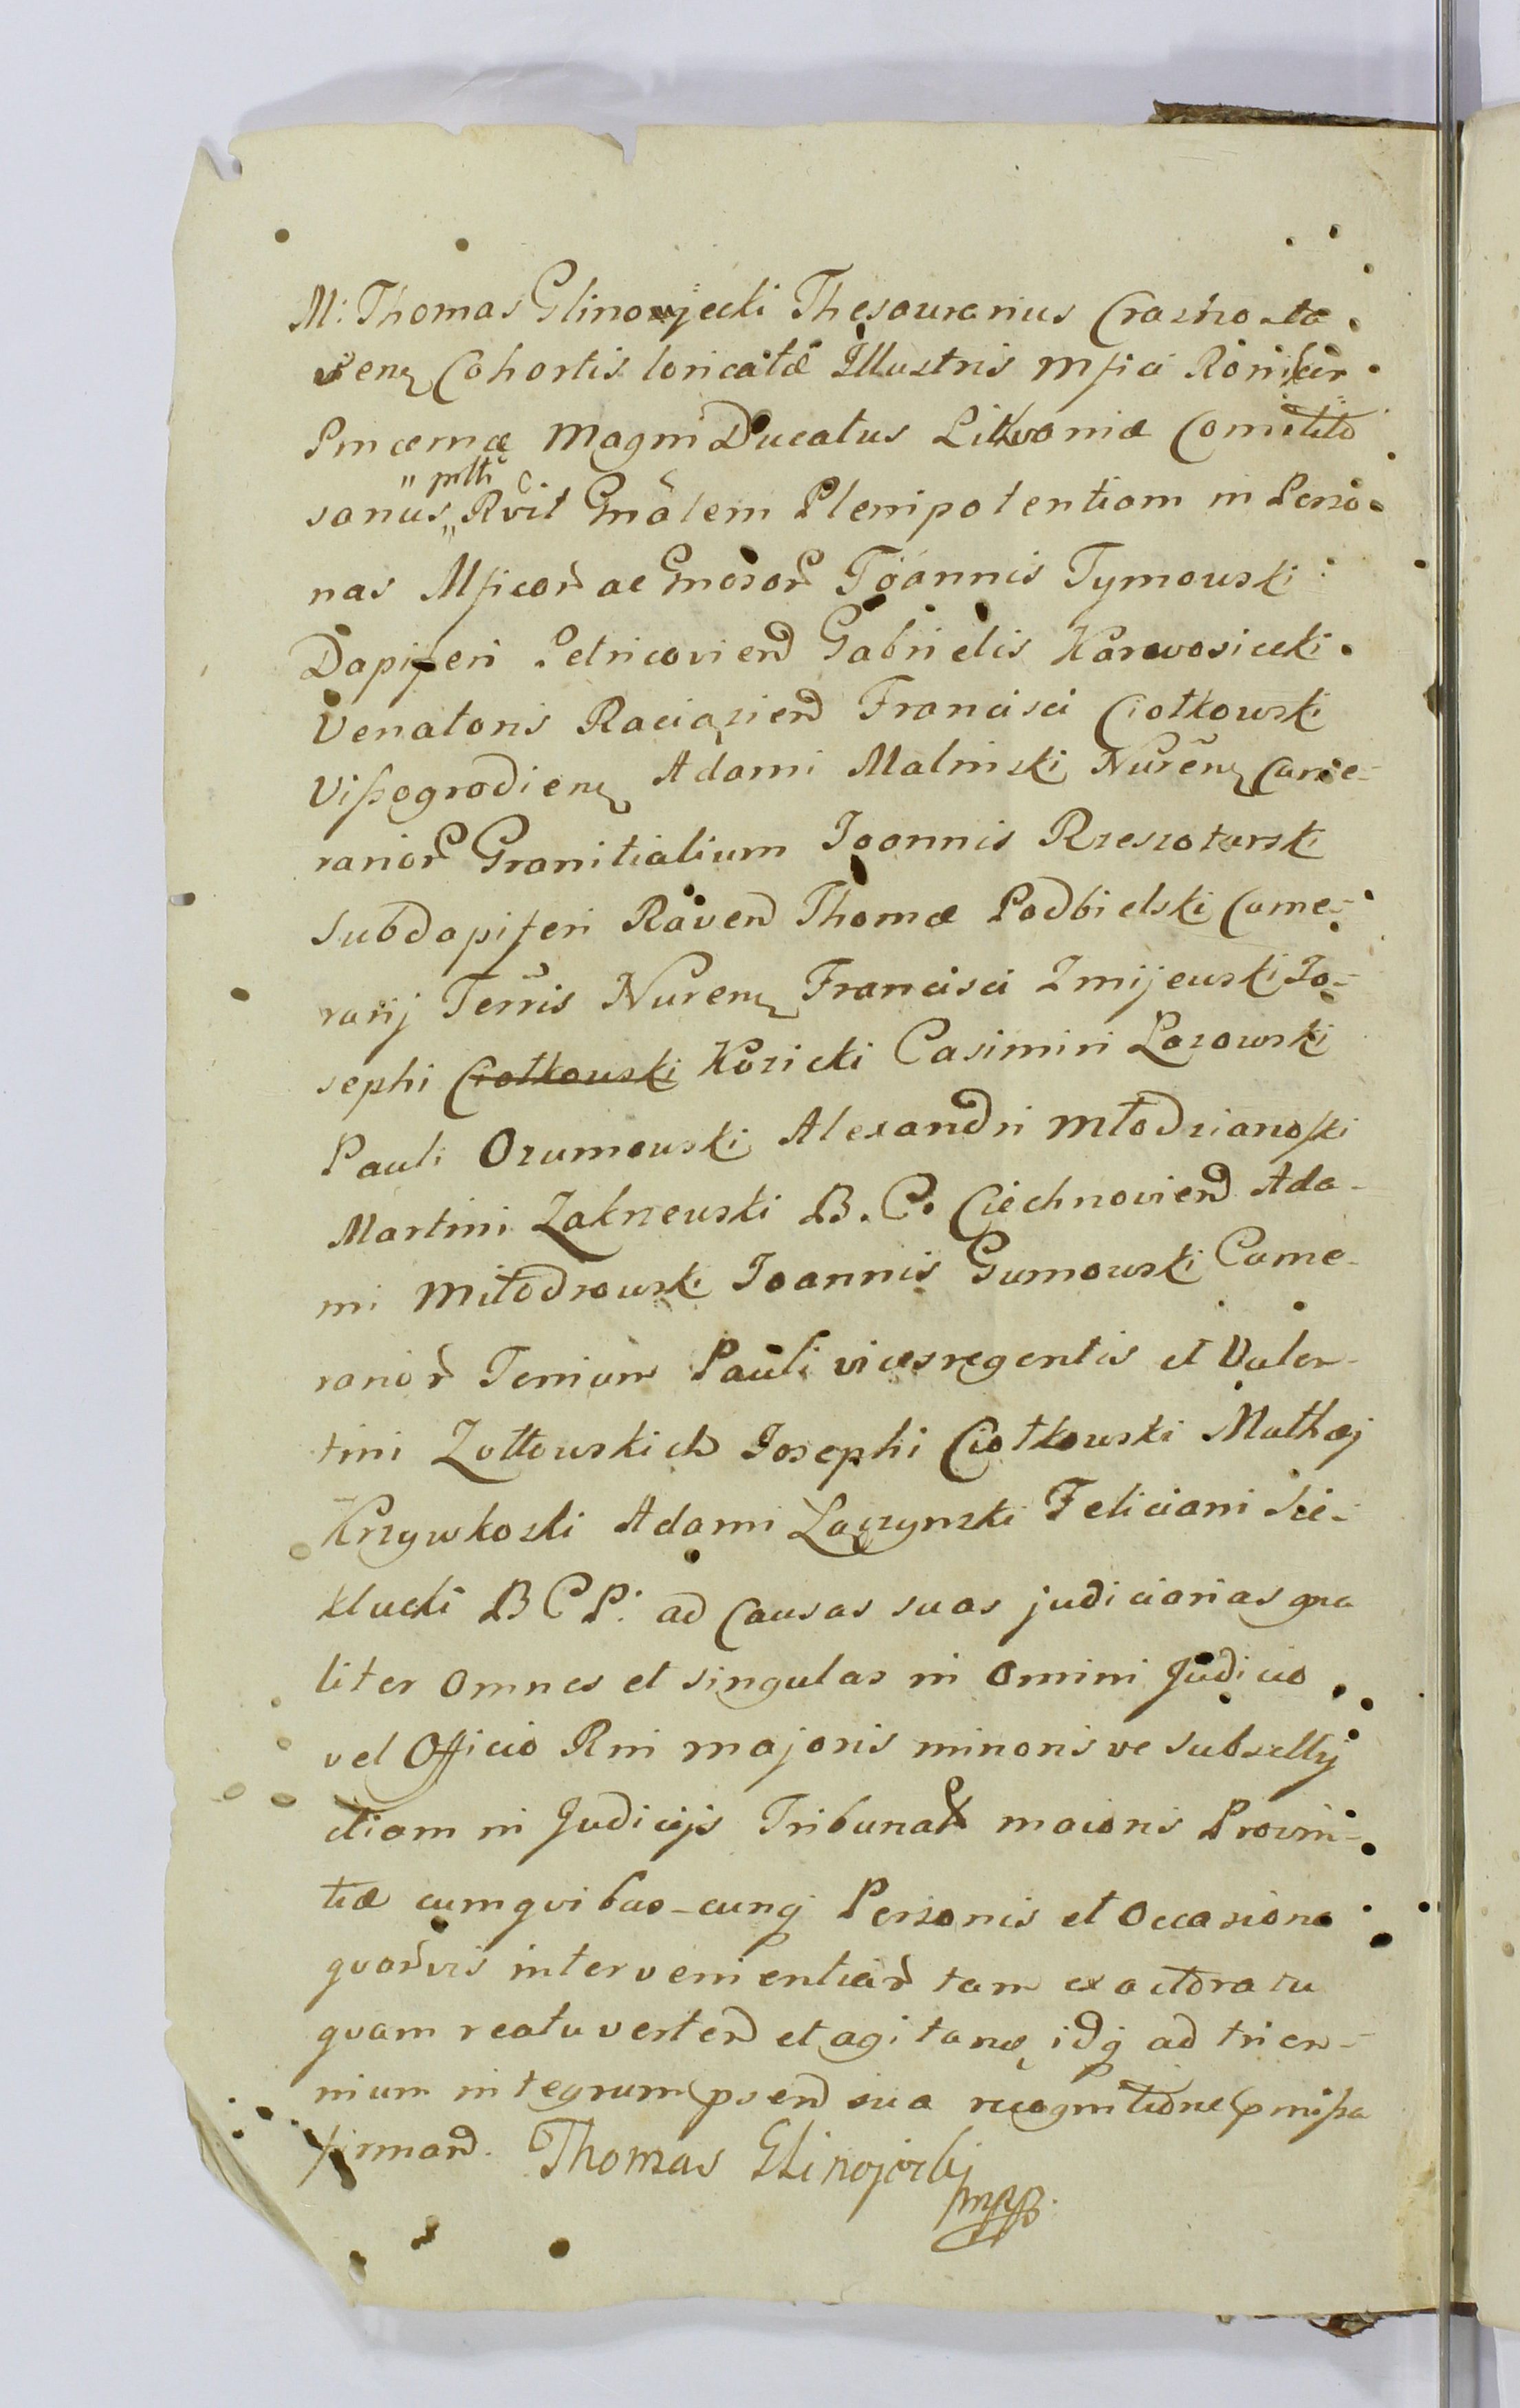 M: Thomas Glinowjecki Thesauranius Crasnosta
vien Cohortis loricatæ Illustris Mfici Röniker
Pincernæ Magni Ducatus Litkvaniæ Comilito
"plth
sanus „ Rvit Gnälem Plenipotentiam in Perso
nas Mficor ac Gnosor Joannis Tymowski
Dapiferi Petricovien Gabrielis Karwosiecki
Venatoris Raciązien Francisci Ciołkowski
Vißogrodien Adami Malinski Nuren Came-
rarior Granitialium Joannis Rzeszotarski
Subdapiferi Raven Thomæ Podbielski Came-
rarij Terris Nuren Francisci Zmijewski Jo-
sephi Ciołkowski Kozicki Casimiri Lazowski
Pauli Ozumowski Alexandri Młodzianoski
Martini Zakrzewski B. C. Ciechnovien Ada-
mi Miłodrowski Joannis Gumowski Came-
rarior Terrium Pauli vicesregentis et Valen-
tini Zołtowskich Josephi Ciołkowski Mathæj
Krzywkoski Adami Łączynski Feliciani Sie-
klucki B C P: ad Causas suas judiciarias gna
liter omnes et singulas in omini Judicio
vel Officio Rni majoris minoris ve Subsellij
etiam in Judicijs Tribunal maioris Provin-
tiæ cumqvibus-cunq Personis et occasione
qvorvis intervenientiar tam ex actoratu
qvam reatu verten et agitan, idq ad trien-
nium integrum psen sua recognitione pmißa
firman. Thomas Glinojecki
mpp.